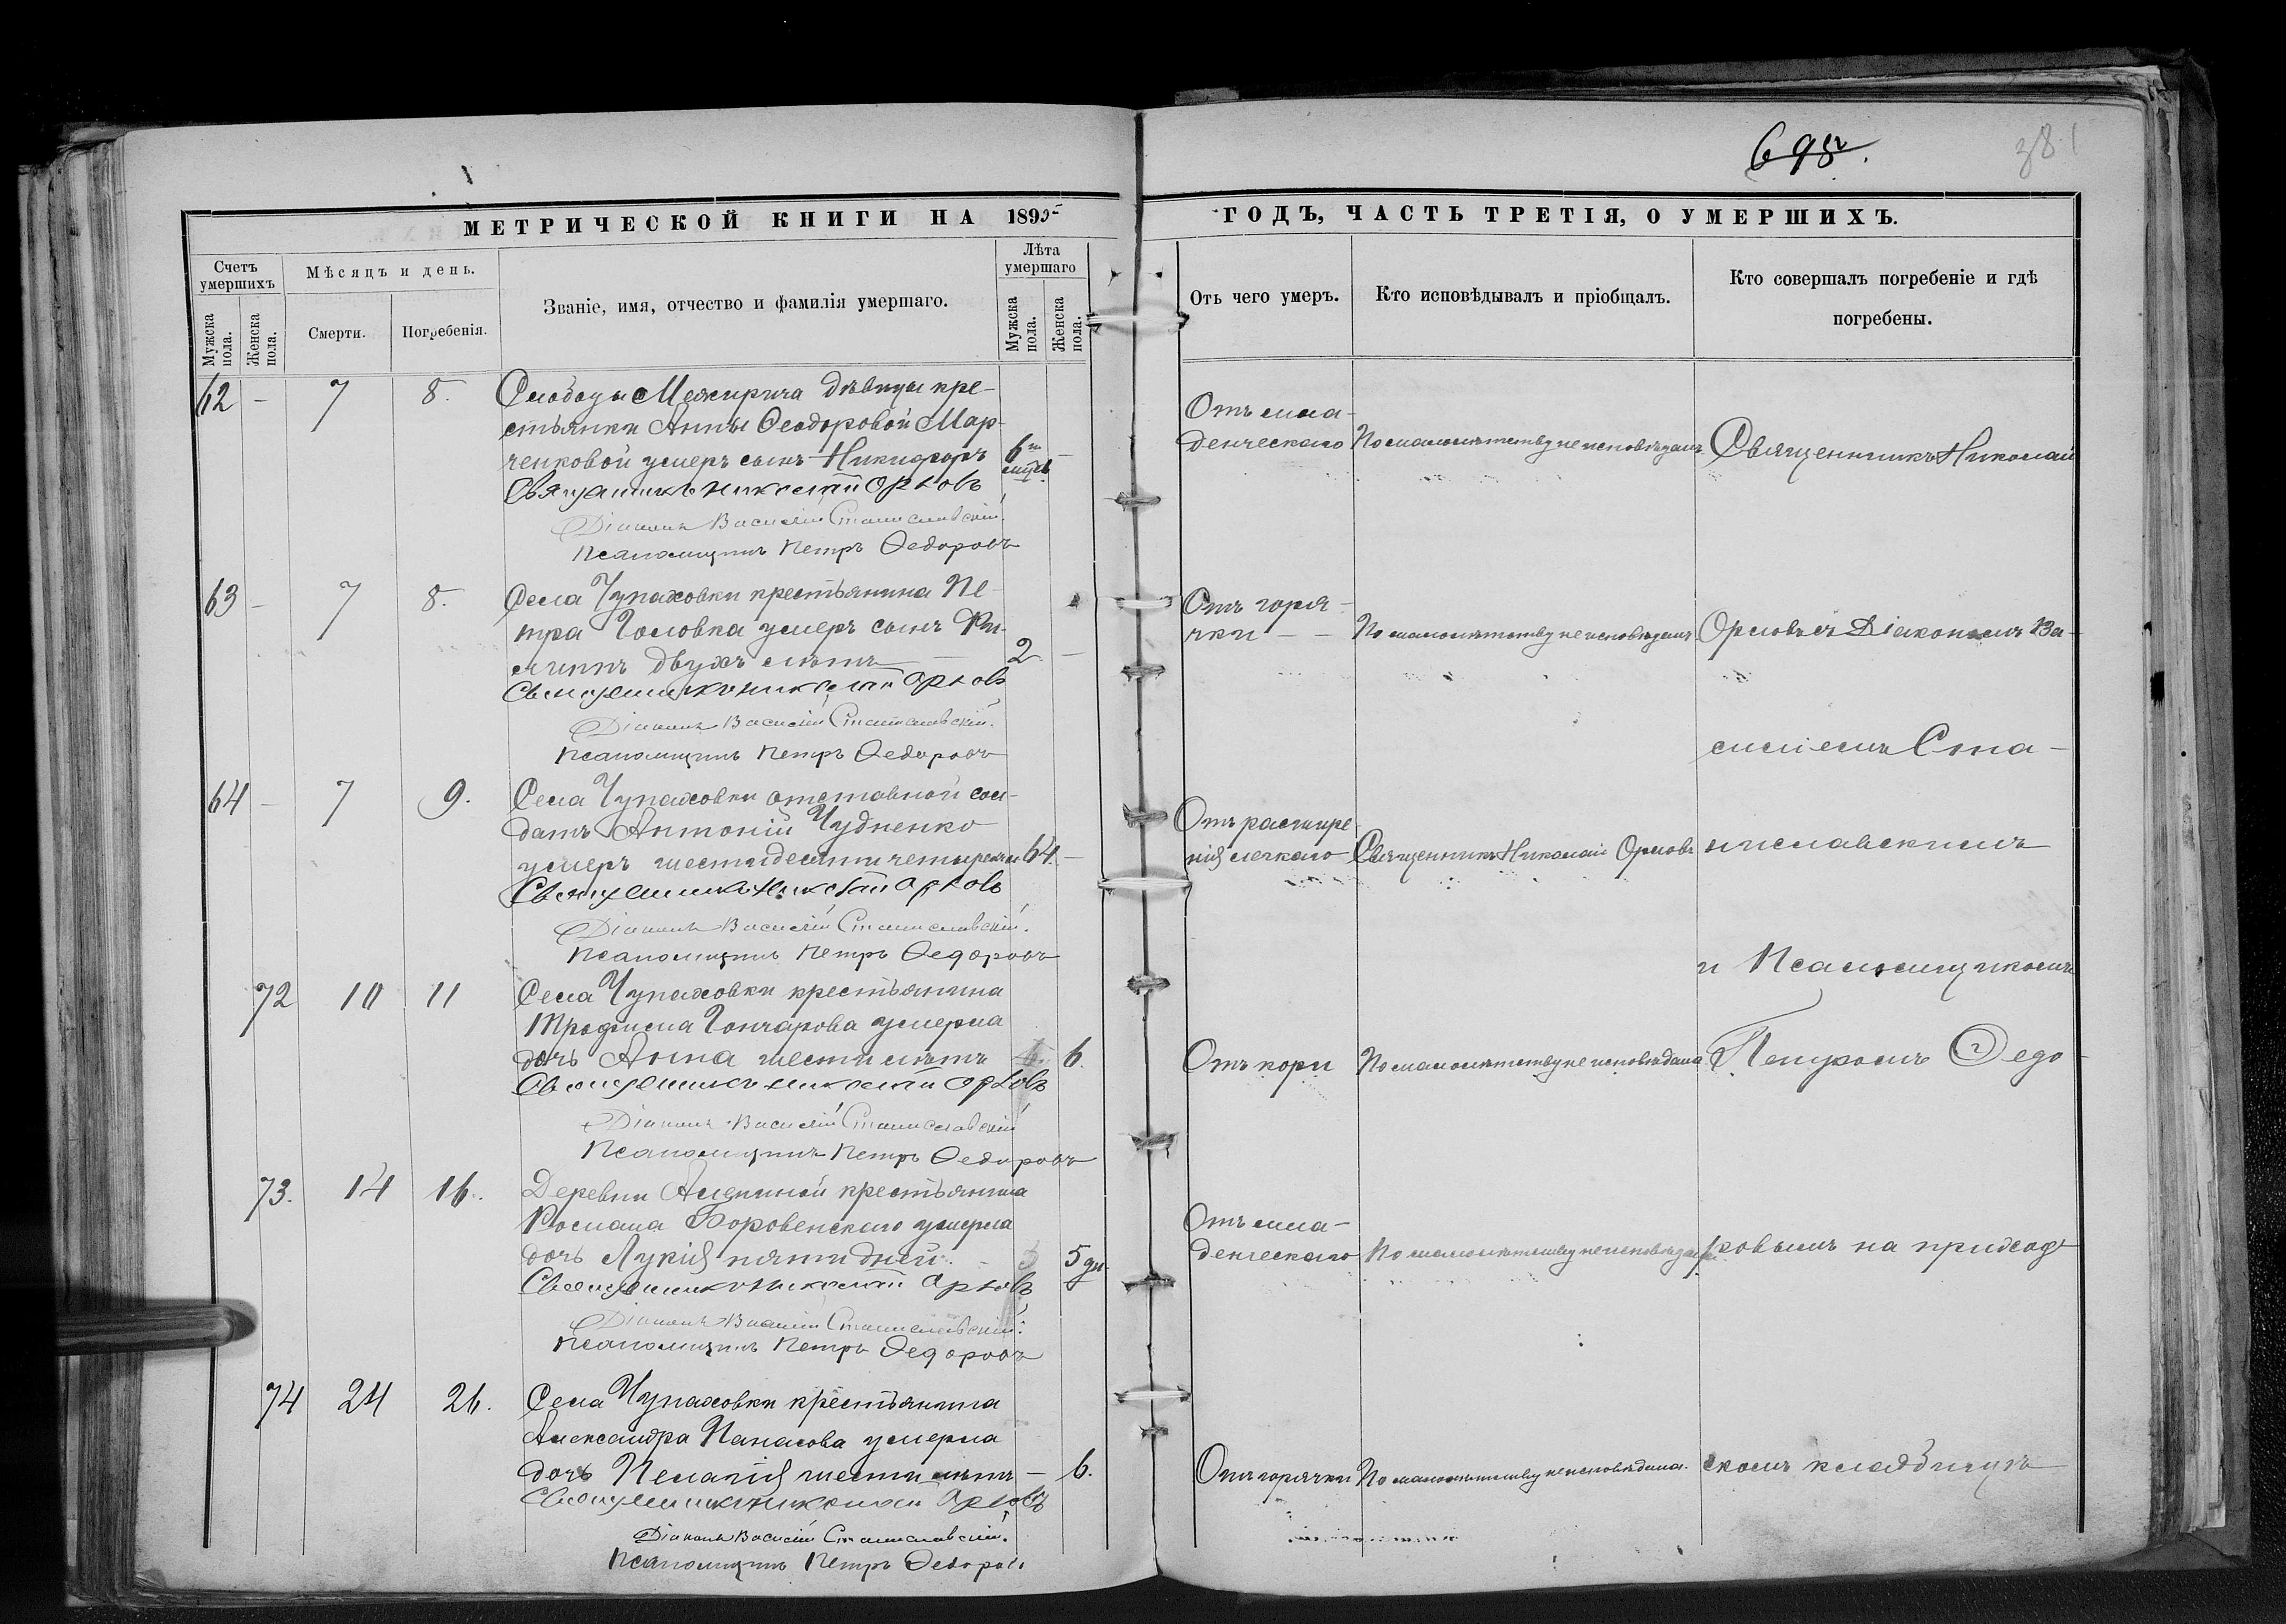 698.
381
МЕТРИЧЕСКОЙ КНИГИ НА 1895
ГОДЪ, ЧАСТЬ ТРЕТІЯ, О УМЕРШИХЪ.
Счетъ умершихъ
Мужска пола.
Женска пола.
Мѣсяцъ и день.
Смерти.
Погребенія.
Званіе, имя, отчество и фамилія умершаго.
Лѣта умершаго
Мужска пола.
Женска пола.
Отъ чего умеръ.
Кто исповѣдывалъ и пріобщалъ.
Кто совершалъ погребеніе и гдѣ
погребены.
62 - 7 8.
Слободы Межирича дѣвицы кре-
стьянки Анны Ѳеодоровой Мар-
ченковой умеръ сынъ Никифоръ 6 -
Священникъ Николай Орловъ
Діаконъ Василій Станиславскій.
Псаломщикъ Петръ Ѳедоровъ
Отъ мла-
денческаго
По малолѣтству не исповѣданъ
Священникъ Николай
63 - 7 8.
Села Чупаховки крестьянина Пе-
тра Головка умеръ сынъ Фи-
липпъ двухъ лѣтъ - 2 -
Священникъ Николай Орловъ
Діаконъ Василій Станиславскій.
Псаломщикъ Петръ Ѳедоровъ
Отъ горя-
чки - -
По малолѣтству не исповѣданъ
Орловъ съ Діакономъ Ва-
силіемъ Ста-
64 - 7 9.
Села Чупаховки отставной сол-
датъ Антоній Чудненко
умеръ шестидесяти четырехъ л 64. -
Священникъ Николай Орловъ
Діаконъ Василій Станиславскій.
Псаломщикъ Петръ Ѳедоровъ
Отъ расшире-
нія легкаго
Священникъ Николай Орловъ
ниславскимъ
и Псаломщикомъ
72 10 11
Села Чупаховки крестьянина
Трофима Гончарова умерла
дочь Анна шести лѣтъ 6.
Священникъ Николай Орловъ
Діаконъ Василій Станиславскій
Псаломщикъ Петръ Ѳедоровъ
Отъ кори
По малолѣтству не исповѣдана
Петромъ Ѳедо-
73. 14 16.
Деревни крестьянина
Романа Боровенскаго умерла
дочь Лукія пяти дней. - 5 дн
Священникъ Николай Орловъ
Діаконъ Василій Станиславскій.
Псаломщикъ Петръ Ѳедоровъ
Отъ мла-
денческаго
По малолѣтству не исповѣдана
ровымъ на приход-
74 24 26.
Села Чупаховки крестьянина
Александра Панасова умерла
дочь Пелагія шести лѣтъ - 6.
Священникъ Николай Орловъ
Діаконъ Василій Станиславскій.
Псаломщикъ Петръ Ѳедоровъ
Отъ горячки
По малолѣтству не исповѣдана.
скомъ кладбищѣ